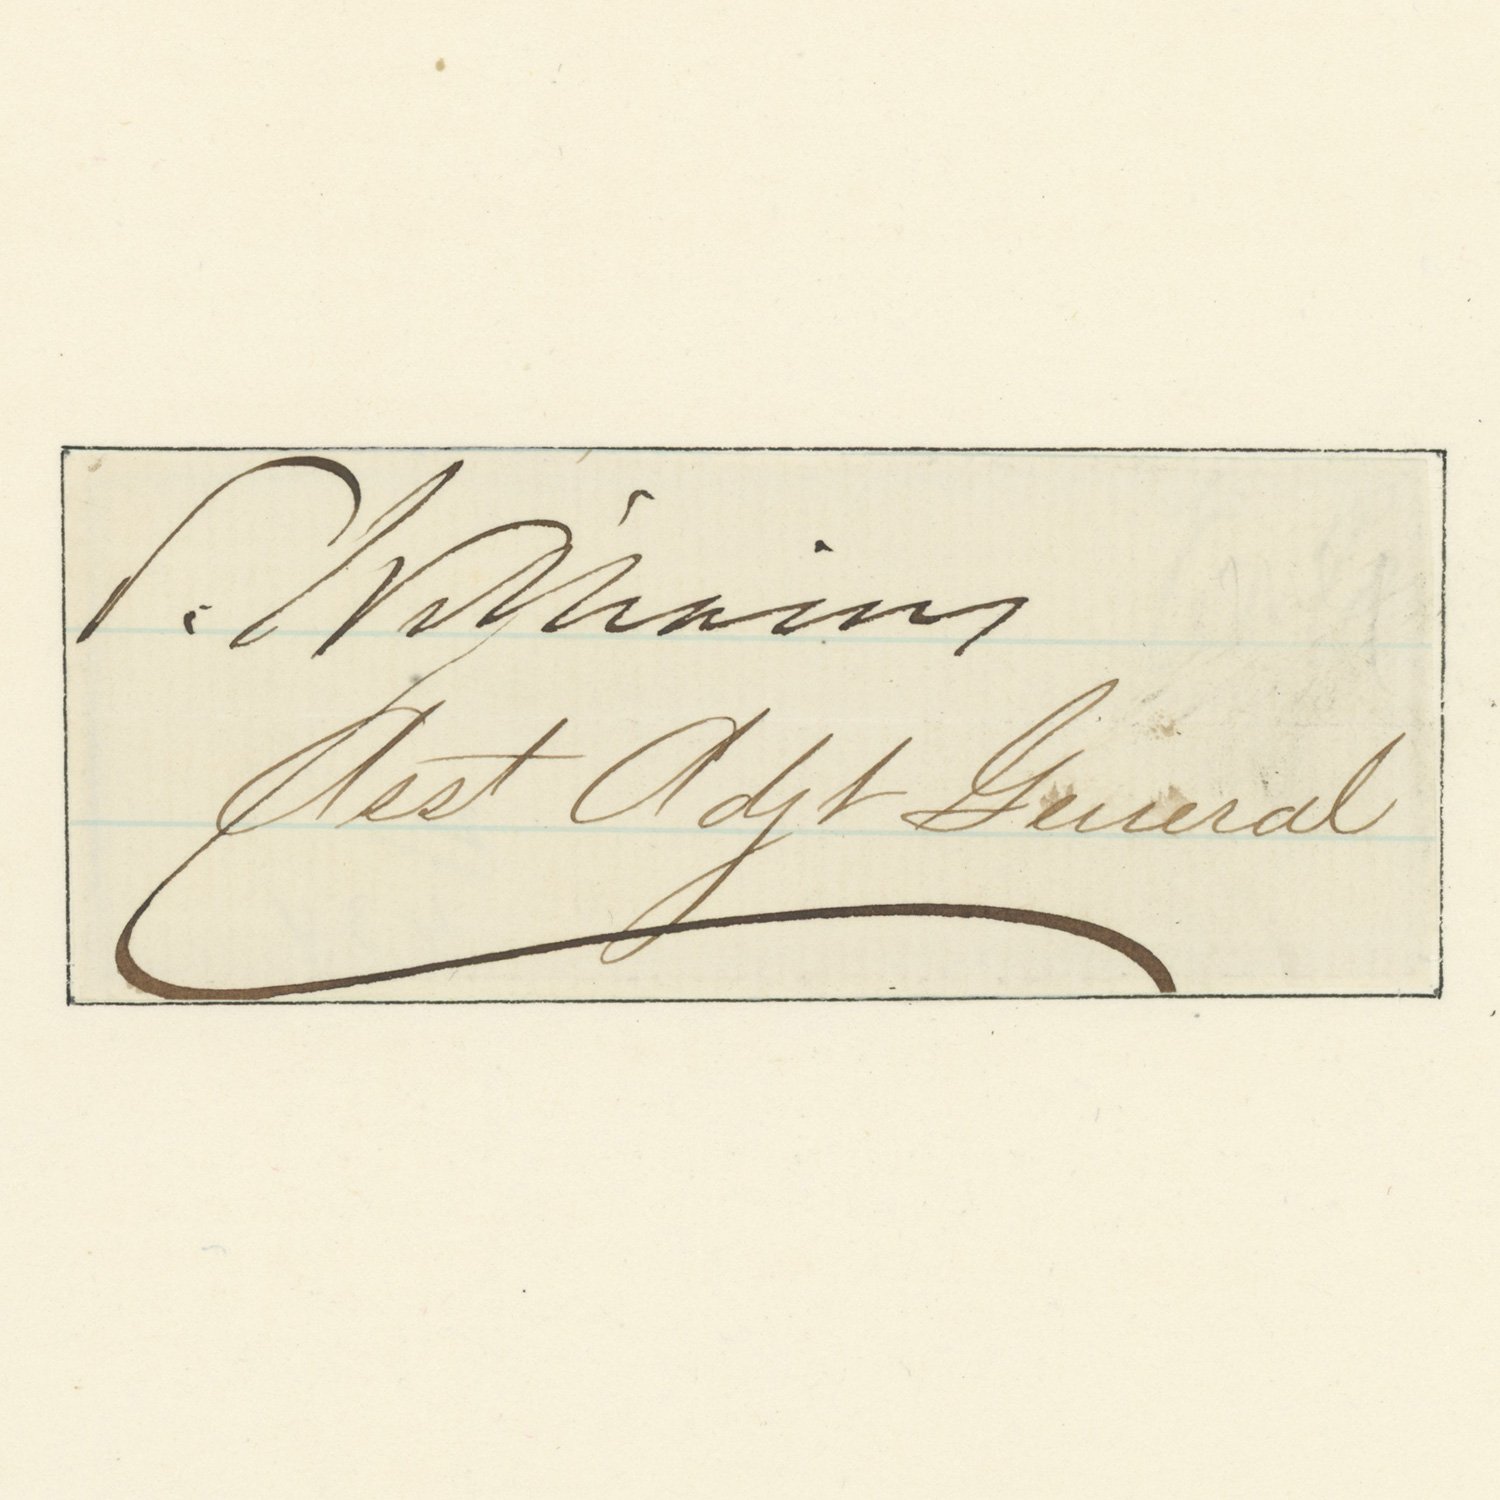 S. Williams
Asst Adjt General